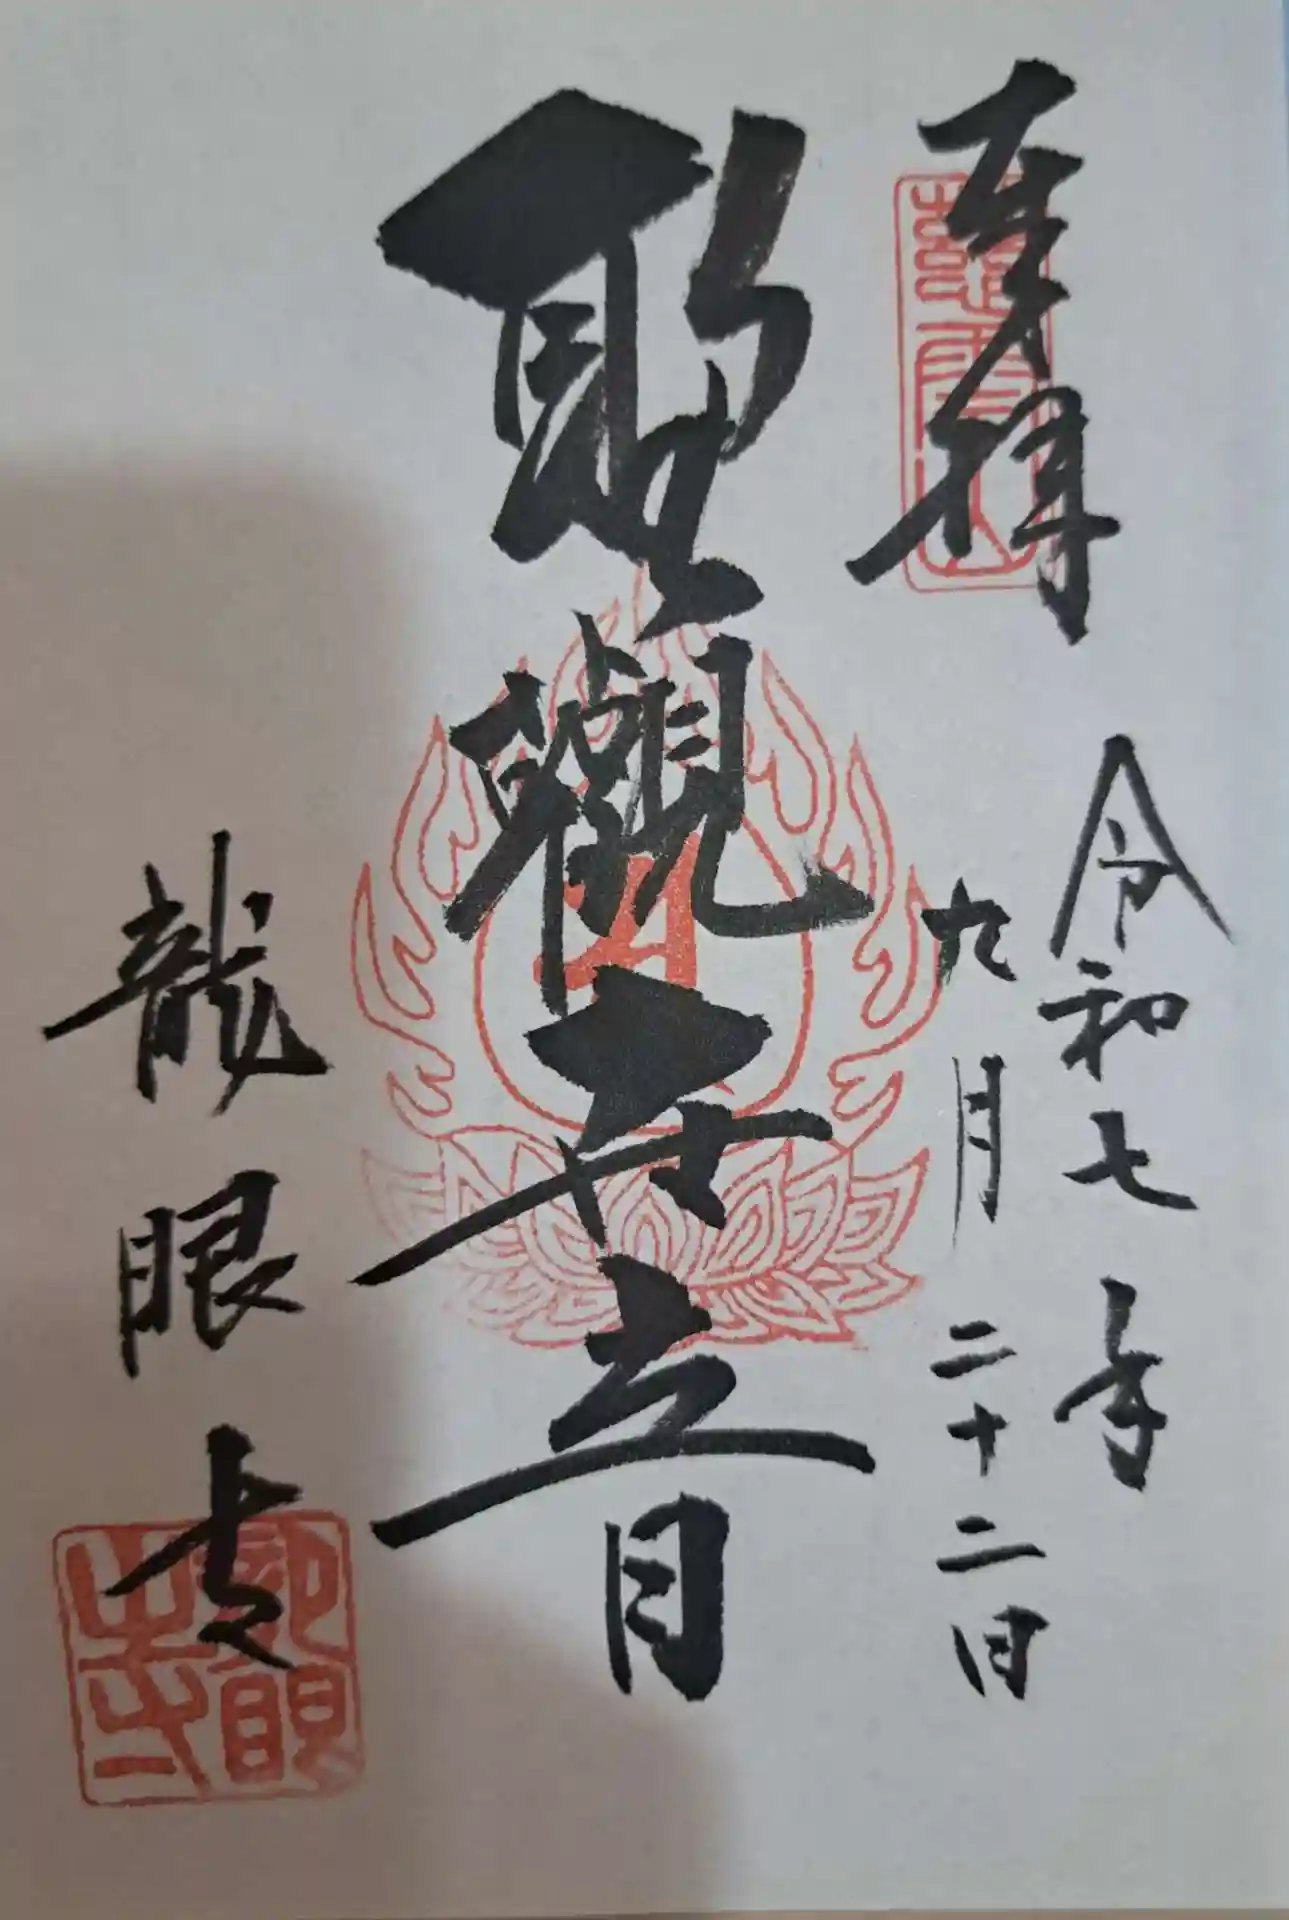 奉拝
慈雲山
令和七年
九月二十二日
聖觀世音
龍眼寺